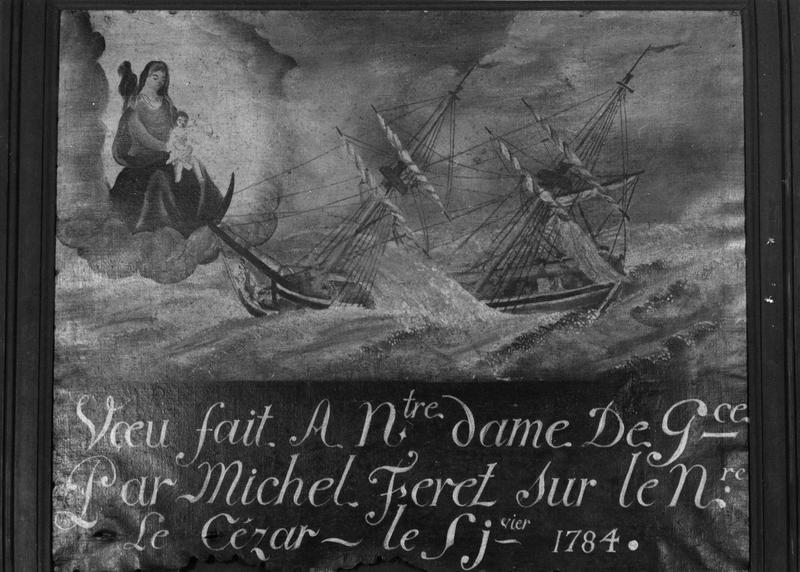 Vœu fait A Ntre dame De Gce
Par Michel Feret sur le Nre
Le Cézar le 5 jvier 1784.